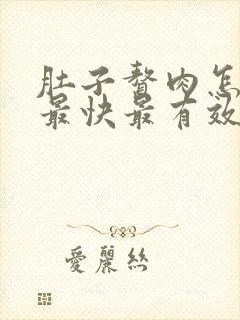 肚子赘肉怎
最快最有效
愛麗絲